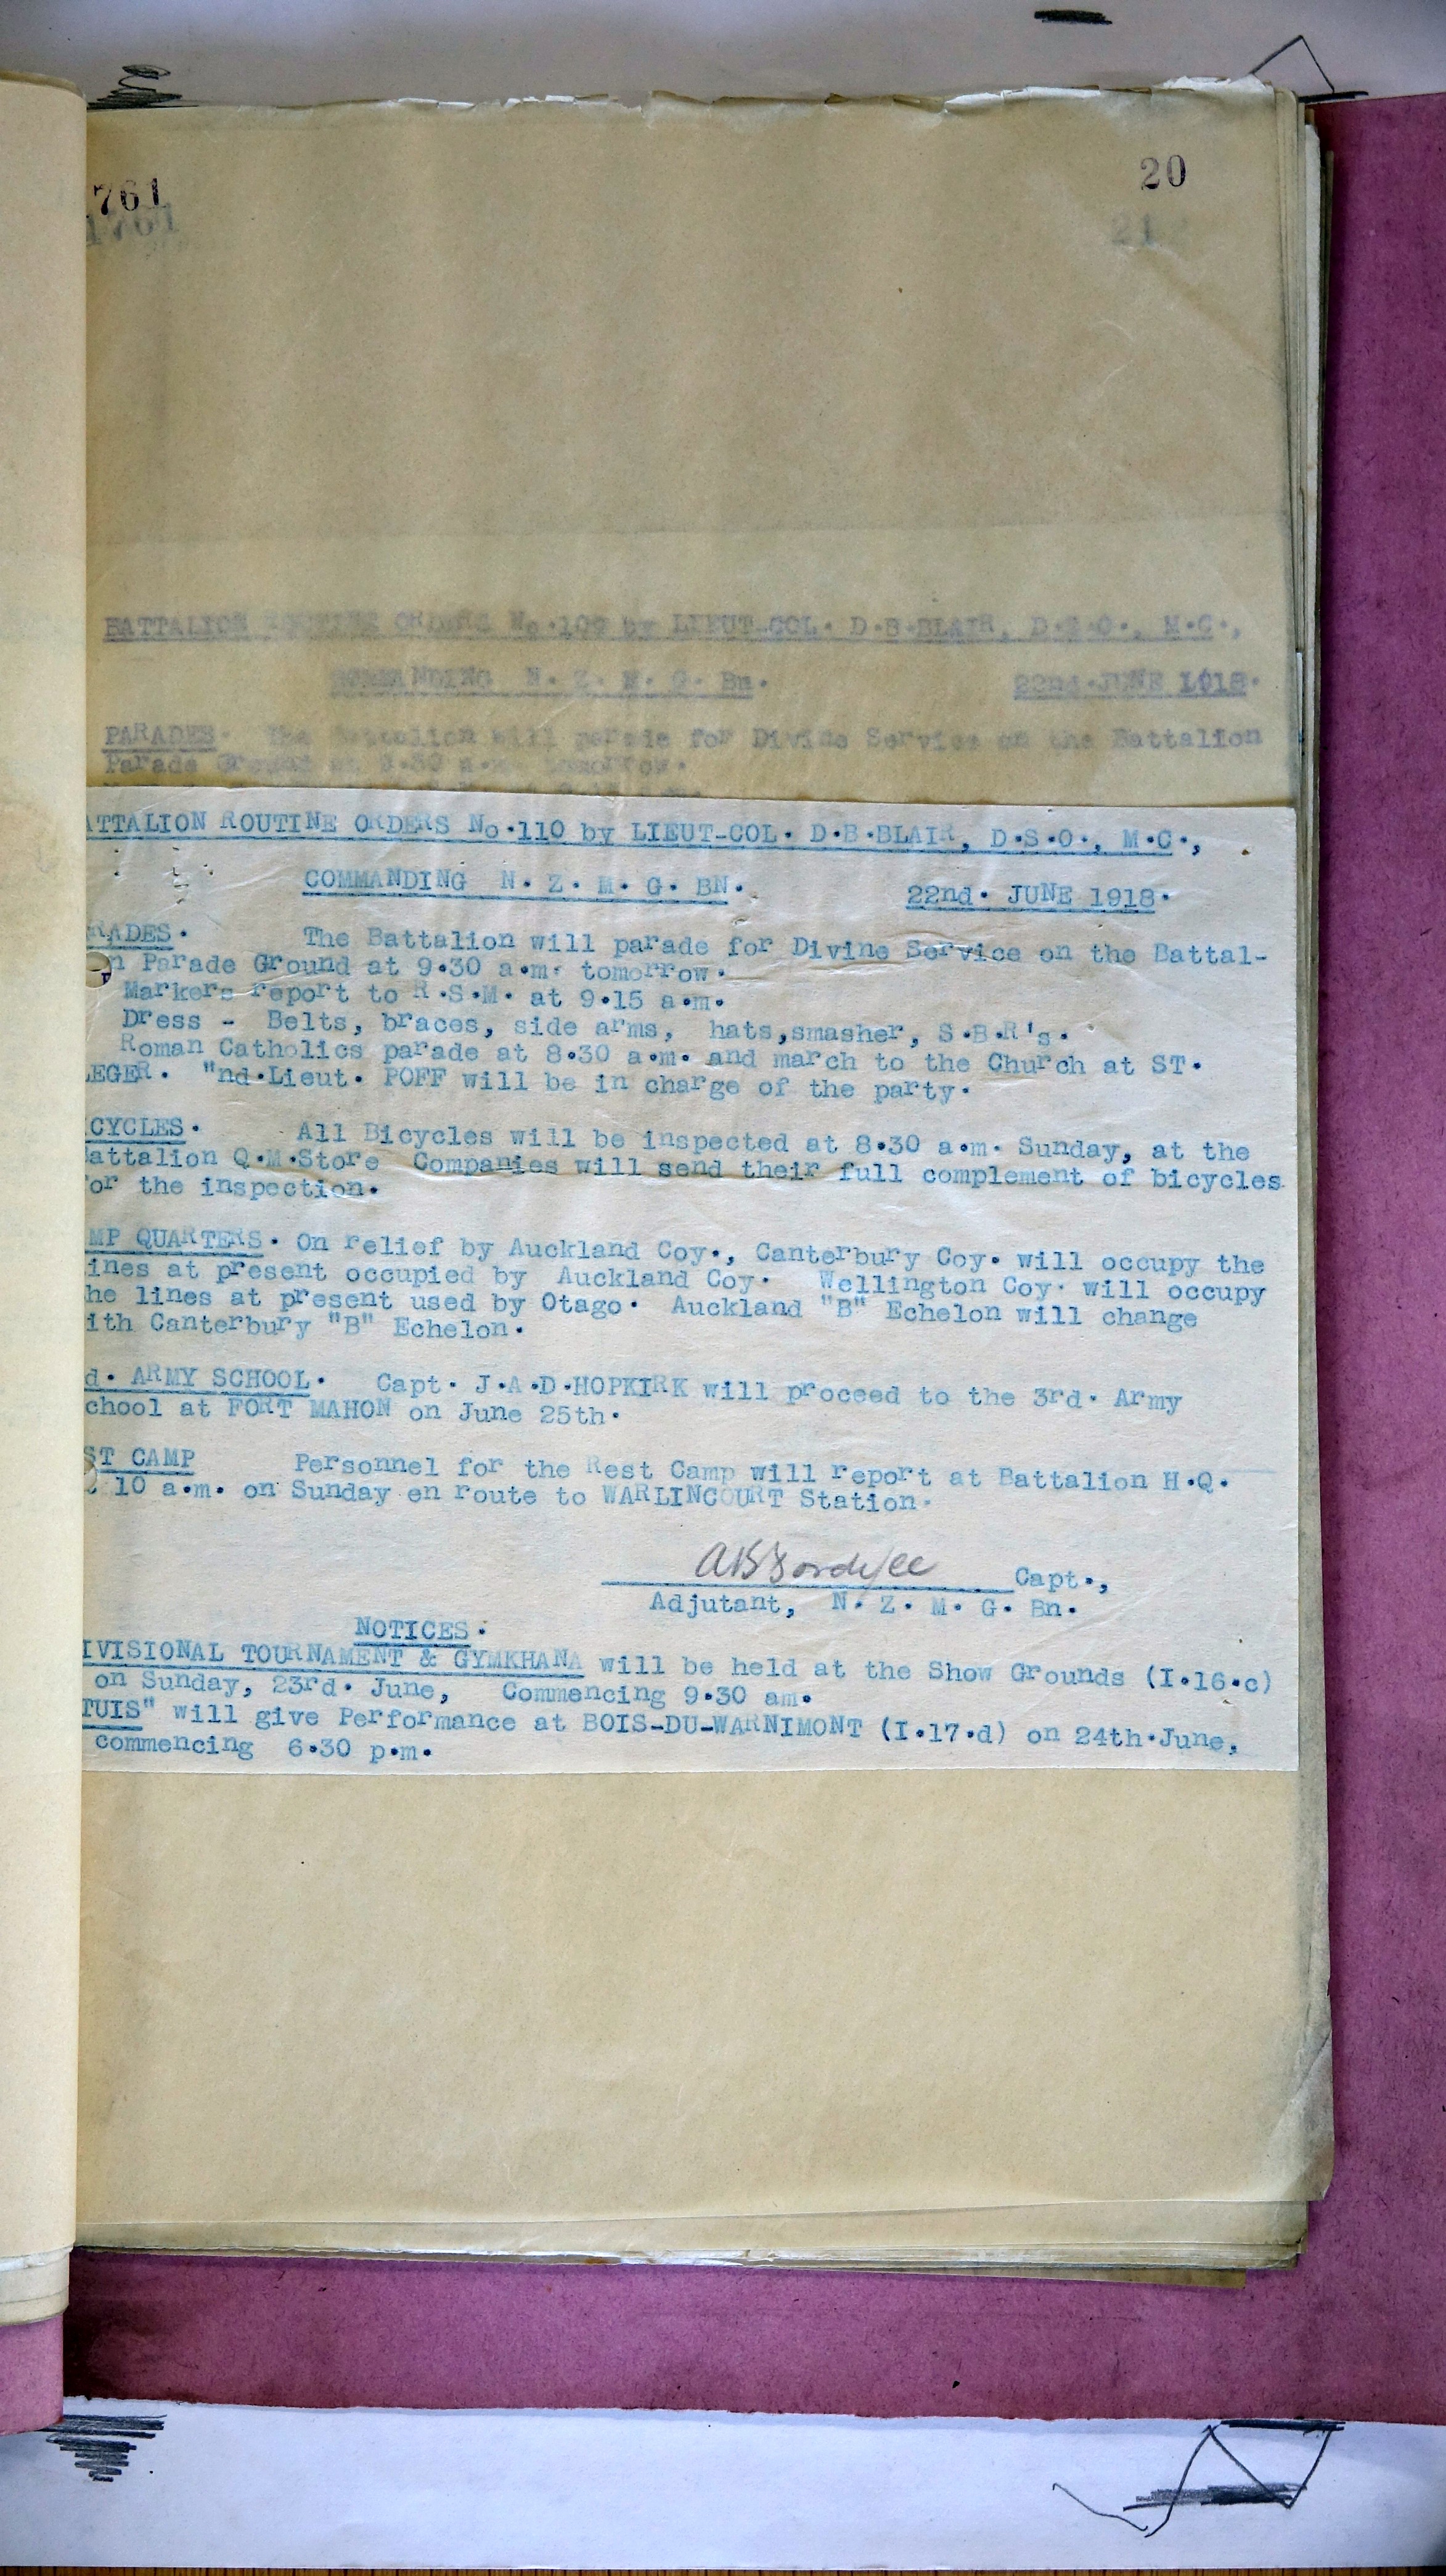 761
1761
20
21
BATTALION ROUTINE ORDERS No.109 by LIEUT-COL. D.B.BLAIR, D.S.O., M.C.,
COMMANDING N. Z. M. G. Bn. 22nd.JUNE 1918.
PARADES. The Battalion will parade for Divine Service on the Battalion
Parade Ground at 9.30 a.m. tomorrow.
ATTALION ROUTINE ORDERS No.110 by LIEUT-COL. D.B.BLAIR, D.S.O., M.C.,
COMMANDING N. Z. M. G. BN. 22nd. JUNE 1918.
RADES. The Battalion will parade for Divine Service on the Battal-
n Parade Ground at 9.30 a.m. tomorrow.
Markers report to R.S.M. at 9.15 a.m.
Dress - Belts, braces, side arms, hats,smasher, S.B.R's.
Roman Catholics parade at 8.30 a.m. and march to the Church at ST.
LEGER. "nd.Lieut. POFF will be in charge of the party.
CYCLES. All Bicycles will be inspected at 8.30 a.m. Sunday, at the
attalion Q.M.Store Companies will send their full complement of bicycles
or the inspection.
MP QUARTERS. On relief by Auckland Coy., Canterbury Coy. will occupy the
ines at present occupied by Auckland Coy. Wellington Coy. will occupy
he lines at present used by Otago. Auckland "B" Echelon will change
ith Canterbury "B" Echelon.
d. ARMY SCHOOL. Capt. J.A.D.HOPKIRK will proceed to the 3rd. Army
chool at FORT MAHON on June 25th.
ST CAMP Personnel for the Rest Camp will report at Battalion H.Q.
t 10 a.m. on Sunday en route to WARLINCOURT Station.
Capt.,
Adjutant, N. Z. M. G. Bn.
NOTICES.
IVISIONAL TOURNAMENT & GYMKHANA will be held at the Show Grounds (I.16.c)
on Sunday, 23rd. June, Commencing 9.30 am.
TUIS" will give Performance at BOIS-DU-WARNIMONT (I.17.d) on 24th.June,
commencing 6.30 p.m.